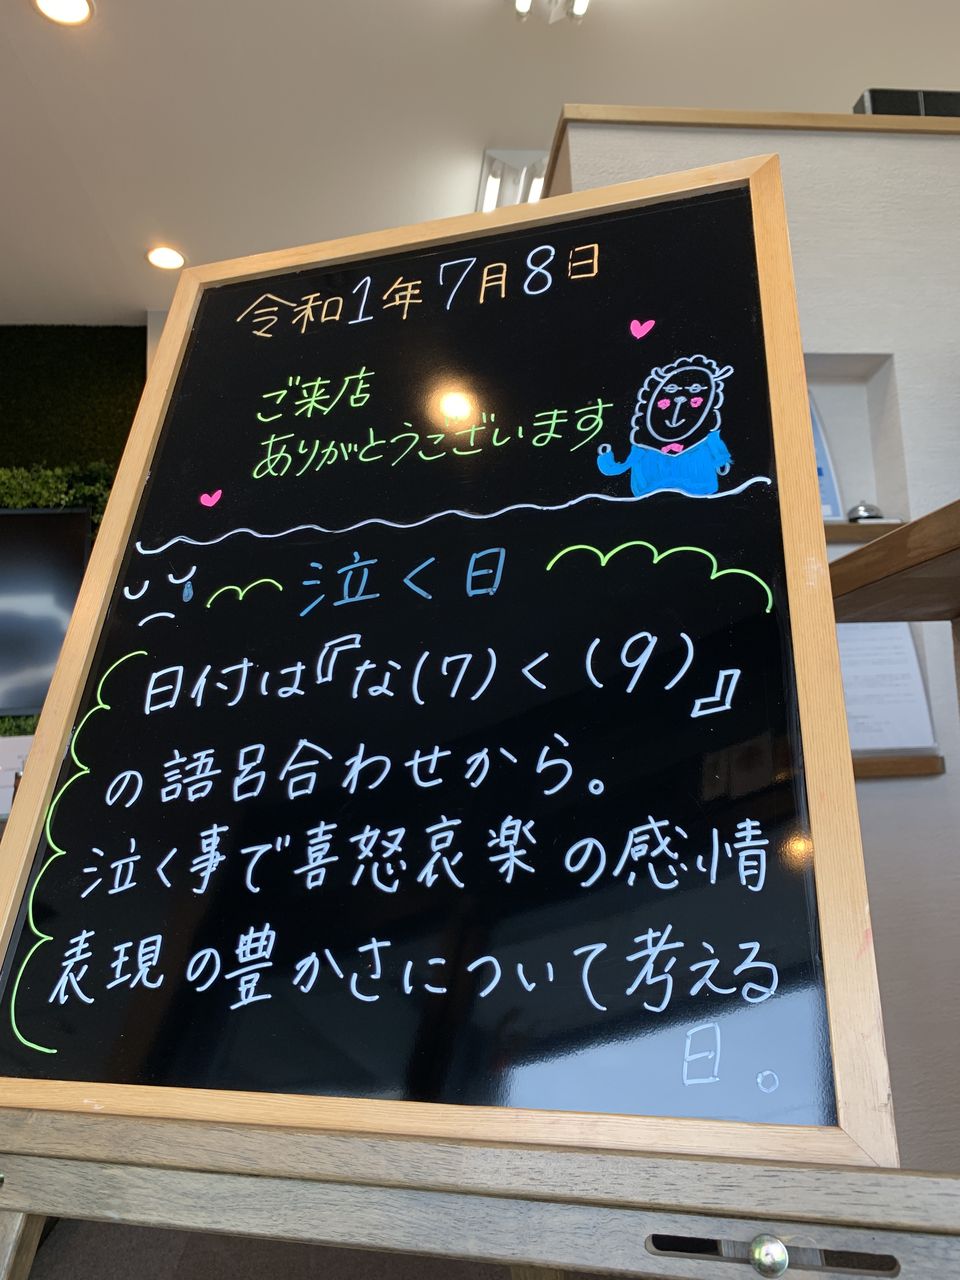 令和1年7月8日
ご来店
ありがとうございます
泣く日
日付は『な(7)く(9)』
の語呂合わせから。
泣く事で喜怒哀楽の感情
表現の豊かさについて考える
日。